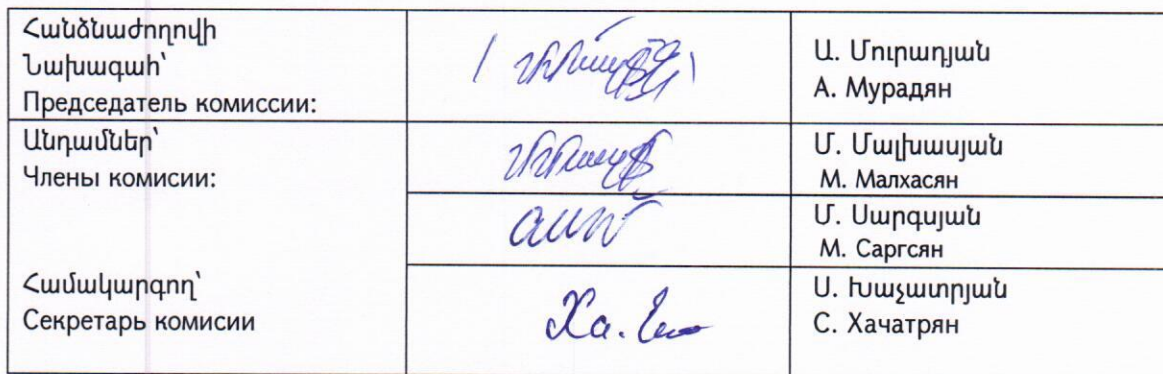 Հանձնաժողովի
Նախագահ՝
Председатель комиссии:
Ա. Մուրադյան
А. Мурадян
Անդամներ՝
Члены комисии:
Մ. Մալխասյան
М. Малхасян
Մ. Սարգսյան
М. Саргсян
Համակարգող՝
Секретарь комисии
Ս. Խաչատրյան
С. Хачатрян